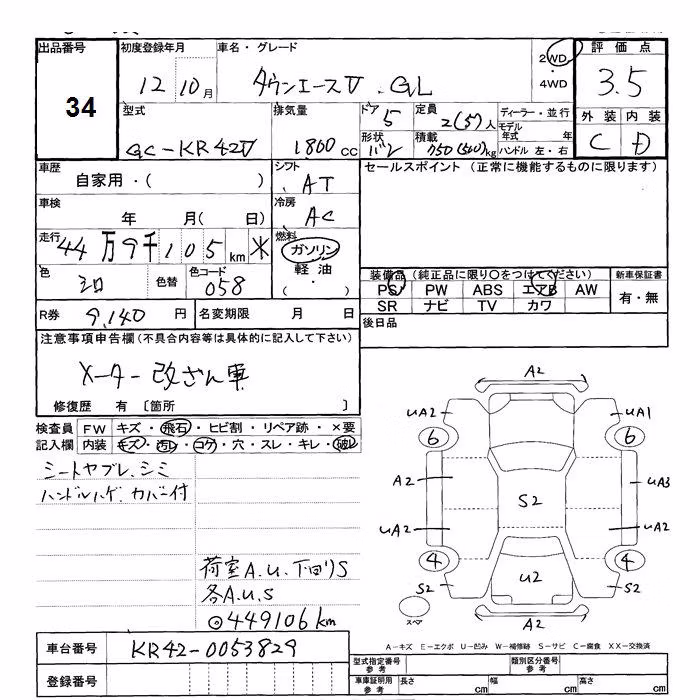 出品番号 34
初度登録年月 12 10月
車名・グレード タウンエースV . GL
2WD ・ 4WD
評価点 3.5
外装 内装
C D
型式 GC-KR42V
排気量 1800cc
ドア 5
定員 2(5)人
形状 バン
積載 750(500)kg
ディーラー・並行
モデル年式 年
ハンドル 左・右
車歴 自家用・( )
シフト AT
セールスポイント (正常に機能するものに限ります)
車検 年 月( 日)
冷房 AC
走行 44万9千105km ※
燃料 ガソリン 軽油 ・( )
色 シロ 色替
色コード 058
装備品 (純正品に限り○をつけてください)
PS PW ABS エアB AW
SR ナビ TV カワ
新車保証書 有・無
R券 9,140 円
名変期限 月 日
後日品
注意事項申告欄(不具合内容等は具体的に記入して下さい)
メーター改ざん車
修復歴 有 〔箇所 〕
検査員記入欄
FW キズ・飛石・ヒビ割・リペア跡・×要
内装 キズ・汚レ・コゲ・穴・スレ・キレ・破レ
シートヤブレ.シミ
ハンドルハゲ.カバー付
荷室A.U.下回りS
各A.U.S
◎449106km
A2
UA2 UA1
6 6
A2 S2 UA3
UA2 UA2
4 4
S2 U2 S2
スペア
A2
A-キズ E-エクボ U-凹み W-補修跡 S-サビ C-腐食 XX-交換済
車台番号 KR42-0053829
登録番号
型式指定番号 参考
類別区分番号 参考
車庫証明用 参考 長さ cm 幅 cm 高さ cm